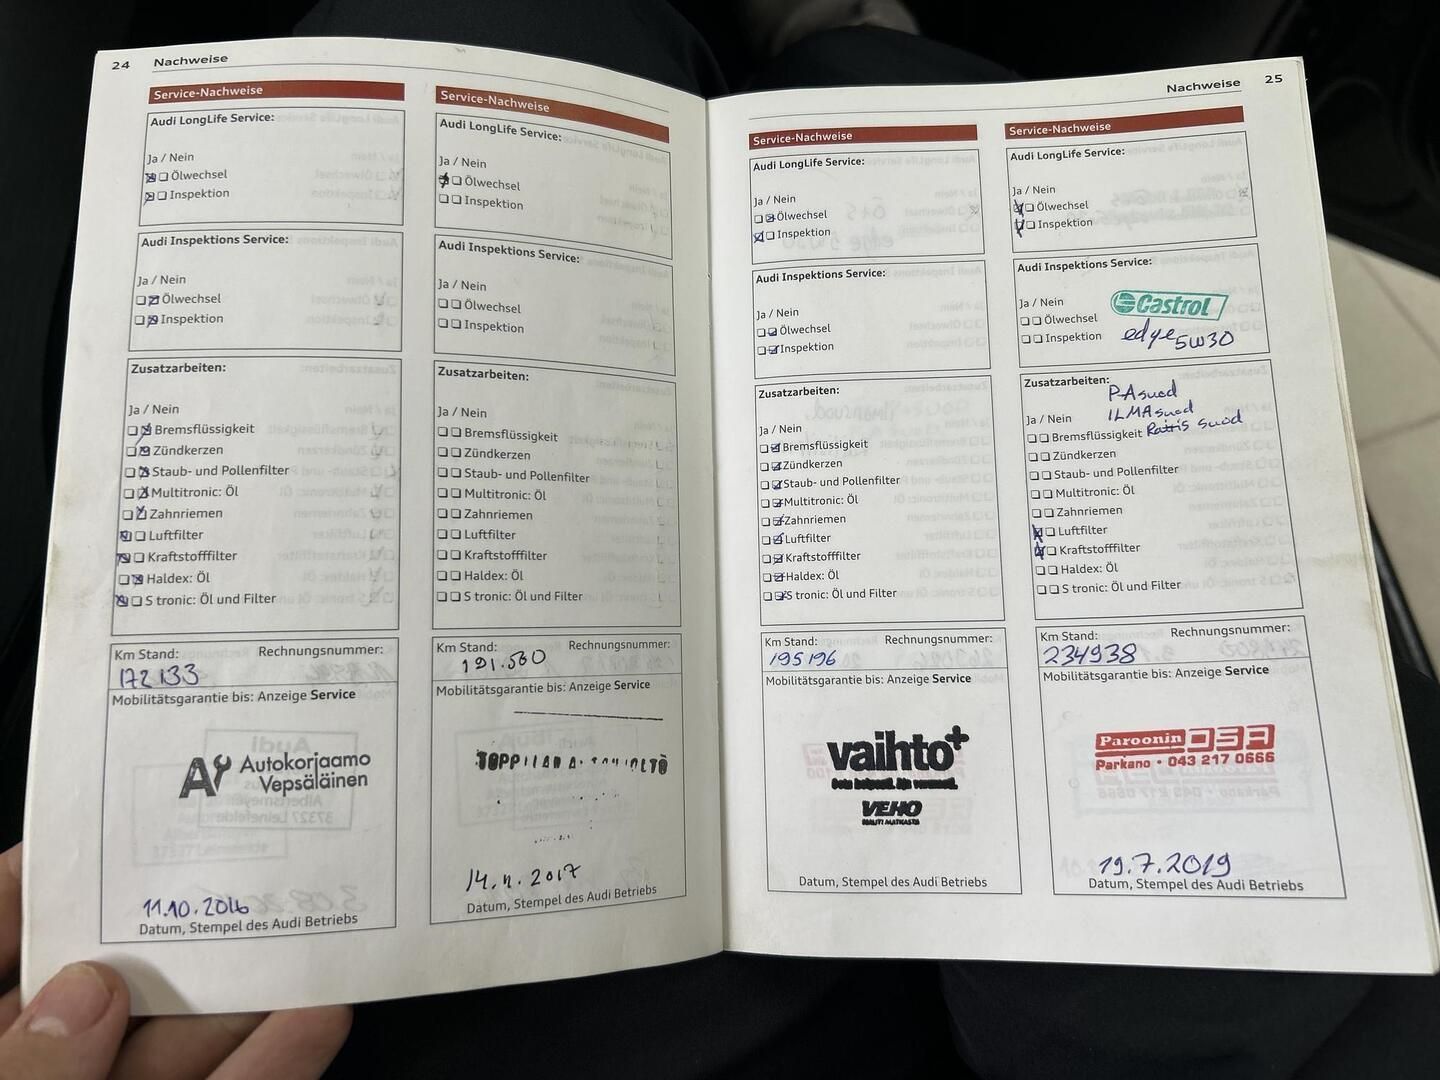 24 Nachweise
Service-Nachweise
Audi LongLife Service:
Ja / Nein
Ölwechsel
Inspektion
Audi Inspektions Service:
Ja / Nein
Ölwechsel
Inspektion
Zusatzarbeiten:
Ja / Nein
Bremsflüssigkeit
Zündkerzen
Staub- und Pollenfilter
Multitronic: Öl
Zahnriemen
Luftfilter
Kraftstofffilter
Haldex: Öl
S tronic: Öl und Filter
Km Stand: Rechnungsnummer:
172133
Mobilitätsgarantie bis: Anzeige Service
Autokorjaamo
Vepsäläinen
11.10.2016
Datum, Stempel des Audi Betriebs
Service-Nachweise
Audi LongLife Service:
Ja / Nein
Ölwechsel
Inspektion
Audi Inspektions Service:
Ja / Nein
Ölwechsel
Inspektion
Zusatzarbeiten:
Ja / Nein
Bremsflüssigkeit
Zündkerzen
Staub- und Pollenfilter
Multitronic: Öl
Zahnriemen
Luftfilter
Kraftstofffilter
Haldex: Öl
S tronic: Öl und Filter
Km Stand: Rechnungsnummer:
191.500
Mobilitätsgarantie bis: Anzeige Service
14.11.2017
Datum, Stempel des Audi Betriebs
Nachweise 25
Service-Nachweise
Audi LongLife Service:
Ja / Nein
Ölwechsel
Inspektion
Audi Inspektions Service:
Ja / Nein
Ölwechsel
Inspektion
Zusatzarbeiten:
Ja / Nein
Bremsflüssigkeit
Zündkerzen
Staub- und Pollenfilter
Multitronic: Öl
Zahnriemen
Luftfilter
Kraftstofffilter
Haldex: Öl
S tronic: Öl und Filter
Km Stand: Rechnungsnummer:
195196
Mobilitätsgarantie bis: Anzeige Service
vaihto+
VEHO
Datum, Stempel des Audi Betriebs
Service-Nachweise
Audi LongLife Service:
Ja / Nein
Ölwechsel
Inspektion
Audi Inspektions Service:
Ja / Nein
Castrol
Ölwechsel
edge 5W30
Inspektion
Zusatzarbeiten:
PA suod
Ja / Nein
ILMA suod
Bremsflüssigkeit Raitis suod
Zündkerzen
Staub- und Pollenfilter
Multitronic: Öl
Zahnriemen
Luftfilter
Kraftstofffilter
Haldex: Öl
S tronic: Öl und Filter
Km Stand: Rechnungsnummer:
234938
Mobilitätsgarantie bis: Anzeige Service
Paroonin
Parkano • 043 217 0666
19.7.2019
Datum, Stempel des Audi Betriebs